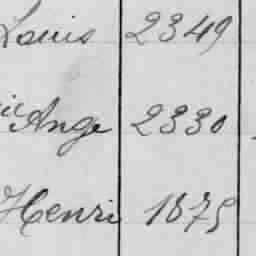 Louis 2349
Ange 2330
Henri 1875